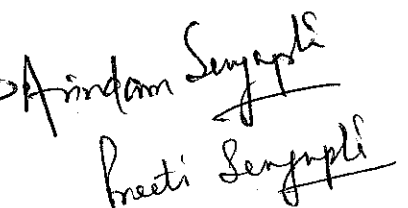 Arindam Sengupta
Preeti Sengupta